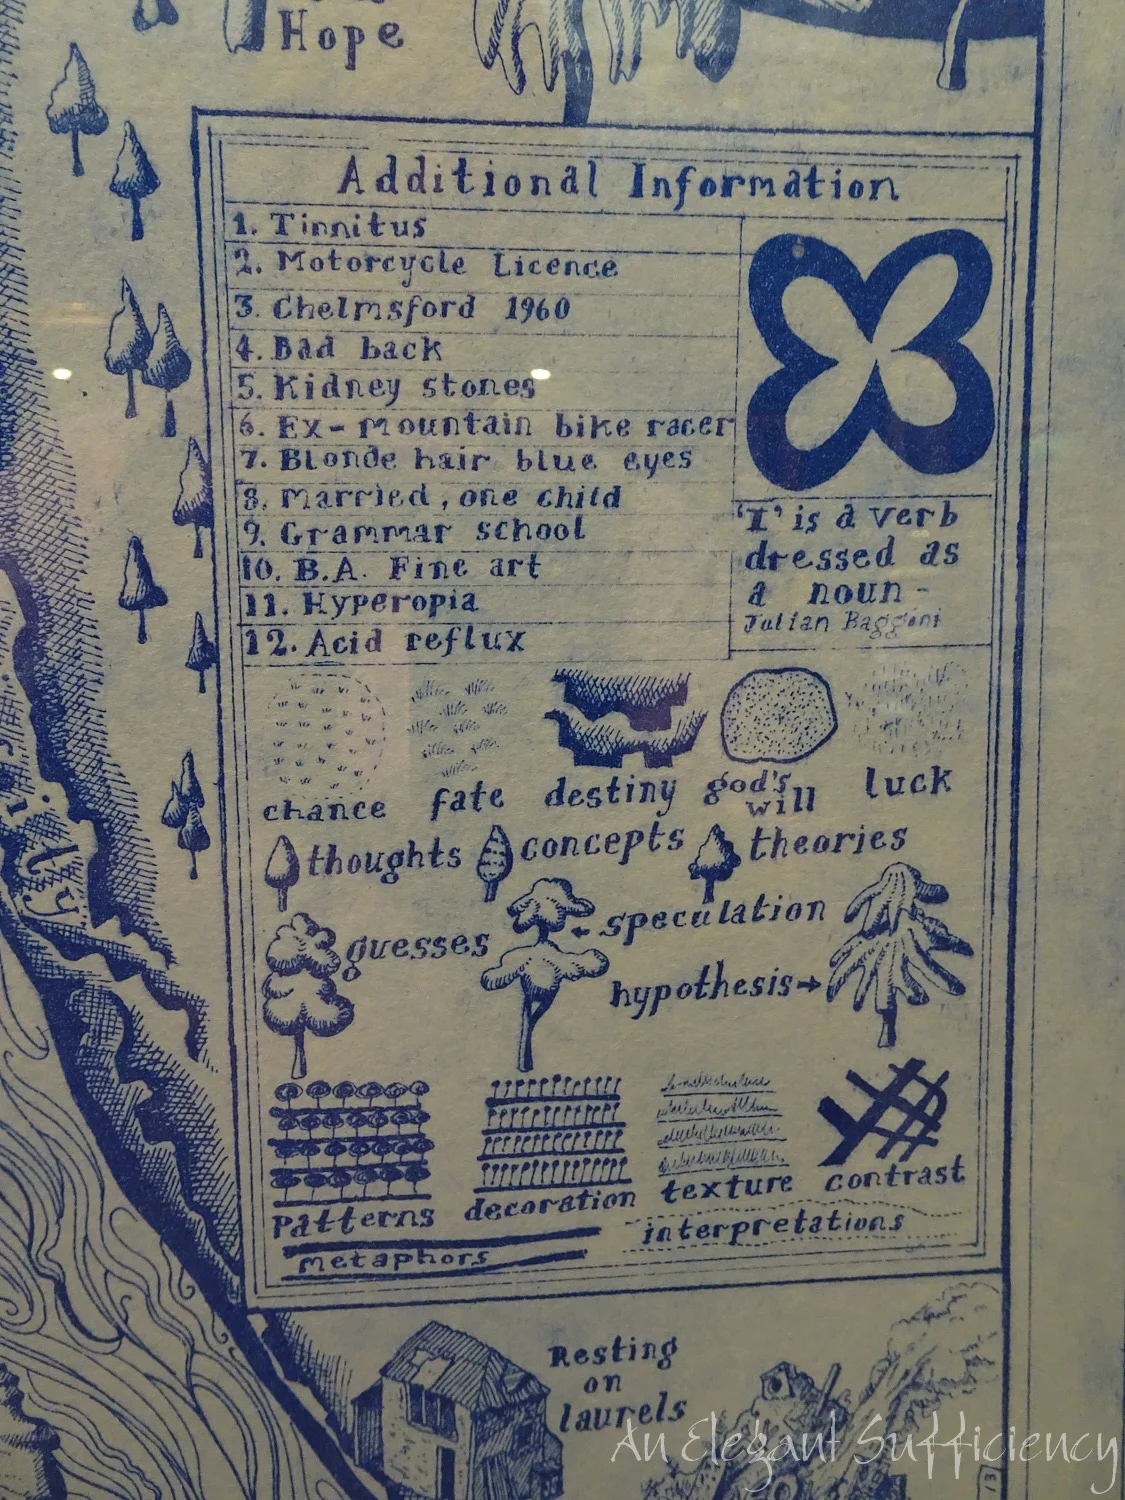 Hope
Additional Information
1. Tinnitus
2. Motorcycle Licence
3. Chelmsford 1960
4. Bad back
5. Kidney stones
6. Ex-mountain bike racer
7. Blonde hair blue eyes
8. Married, one child
9. Grammar school
10. B.A. Fine art
11. Hyperopia
12. Acid reflux
'I' is a verb
dressed as
a noun -
Julian Baggini
chance fate destiny god's will luck
thoughts concepts theories
guesses speculation
hypothesis
Patterns decoration texture contrast
metaphors interpretations
Resting
on
laurels
An Elegant Sufficiency
13